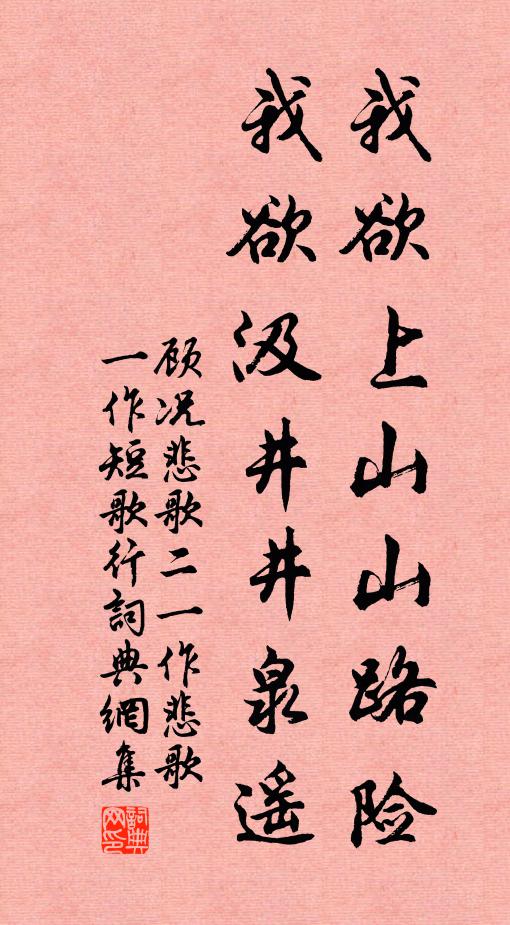 我欲上山山路险
我欲汲井井泉遥
顾况悲歌二一作悲歌
一作短歌行詞典網集
詞典网印